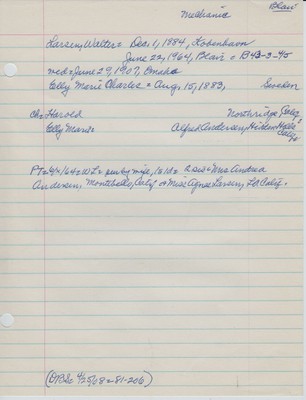 Blair
Mechanic
Larsen, Walter = Dec. 1, 1984, Kobenhavn
June 22, 1964, Blair = B43-3-45
wed = June 29, 1907, Omaha
Elly Marie Charles = Aug. 15, 1883, Sweden
Ch = Harold Northridge, Calif.
Elly Mans = Alfred Andersen, Hidden Hills Calif.
PT = 4/4/64 = w L = sur by wife, 1s 1d = 2 sis = Mrs Andrea
Andersen, Montebello, Calif + Miss Agnes Larsen, LA Calif.
(OBSc 4/25/68 = 81-206)